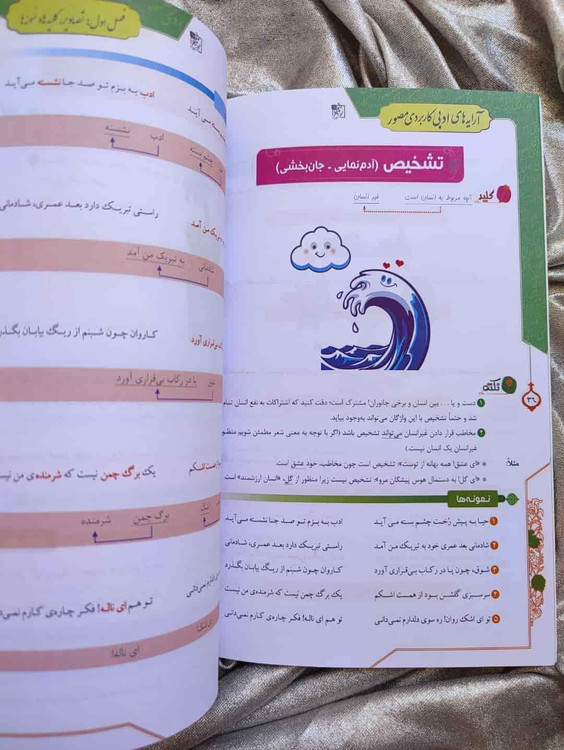 آرایه‌های ادبی کاربردی مصور
تشخیص (آدم‌نمایی - جان‌بخشی)
کلید آنچه مربوط به انسان است غیر انسان
نکته
۱ دست و پا... بین انسان و برخی جانوران! مشترک است؛ دقت کنید که اشتراکات به نفع انسان تمام
شد و حتماً تشخیص با این واژگان می‌تواند به‌وجود بیاید.
۲ مخاطب قرار دادن غیرانسان می‌تواند تشخیص باشد (اگر با توجه به معنی شعر مطمئن شویم منظور
غیرانسان یک انسان نیست).
مثلاً: «ای عشق! همه بهانه از توست»: تشخیص است چون مخاطب، خود عشق است
«ای گل! به دستمال هوس پیشگان مرو»: تشخیص نیست زیرا منظور از گل، «انسان ارزشمند» است
۳۶
نمونه‌ها
۱ حیا به پیش رُخت چشم بسته می آید ادب به بزم تو صد جا نشسته می آید
۲ شادمانی بعد عمری خود به تبریک من آمد راستی تبریک دارد بعد عمری، شادمانی
۳ شوق، چون پا در رکاب بی‌قراری آورد کاروان چون شبنم از ریگ بیابان بگذرد
۴ سرسبزی گلشن بود از همت اشکم یک برگ چمن نیست که شرمنده‌ی من نیست
۵ تو ای اشک روان! ره سوی دلدارم نمی‌دانی تو هم ای ناله! فکر چاره‌ی کارم نمی‌دانی
فصل اول: تصاویر، کلیدها و نمونه‌ها
ادب به بزم تو صد جا نشسته می‌آید
ادب نشسته
چشم بسته
راستی تبریک دارد بعد عمری، شادمانی
تبریک من آمد
شادمانی به تبریک من آمد
کاروان چون شبنم از ریگ بیابان بگذرد
بی‌قراری آورد
پا در رکاب بی‌قراری آورد
یک برگ چمن نیست که شرمنده‌ی من نیست
همت اشکم
برگ چمن شرمنده
تو هم ای ناله! فکر چاره‌ی کارم نمی‌دانی
ای ناله!